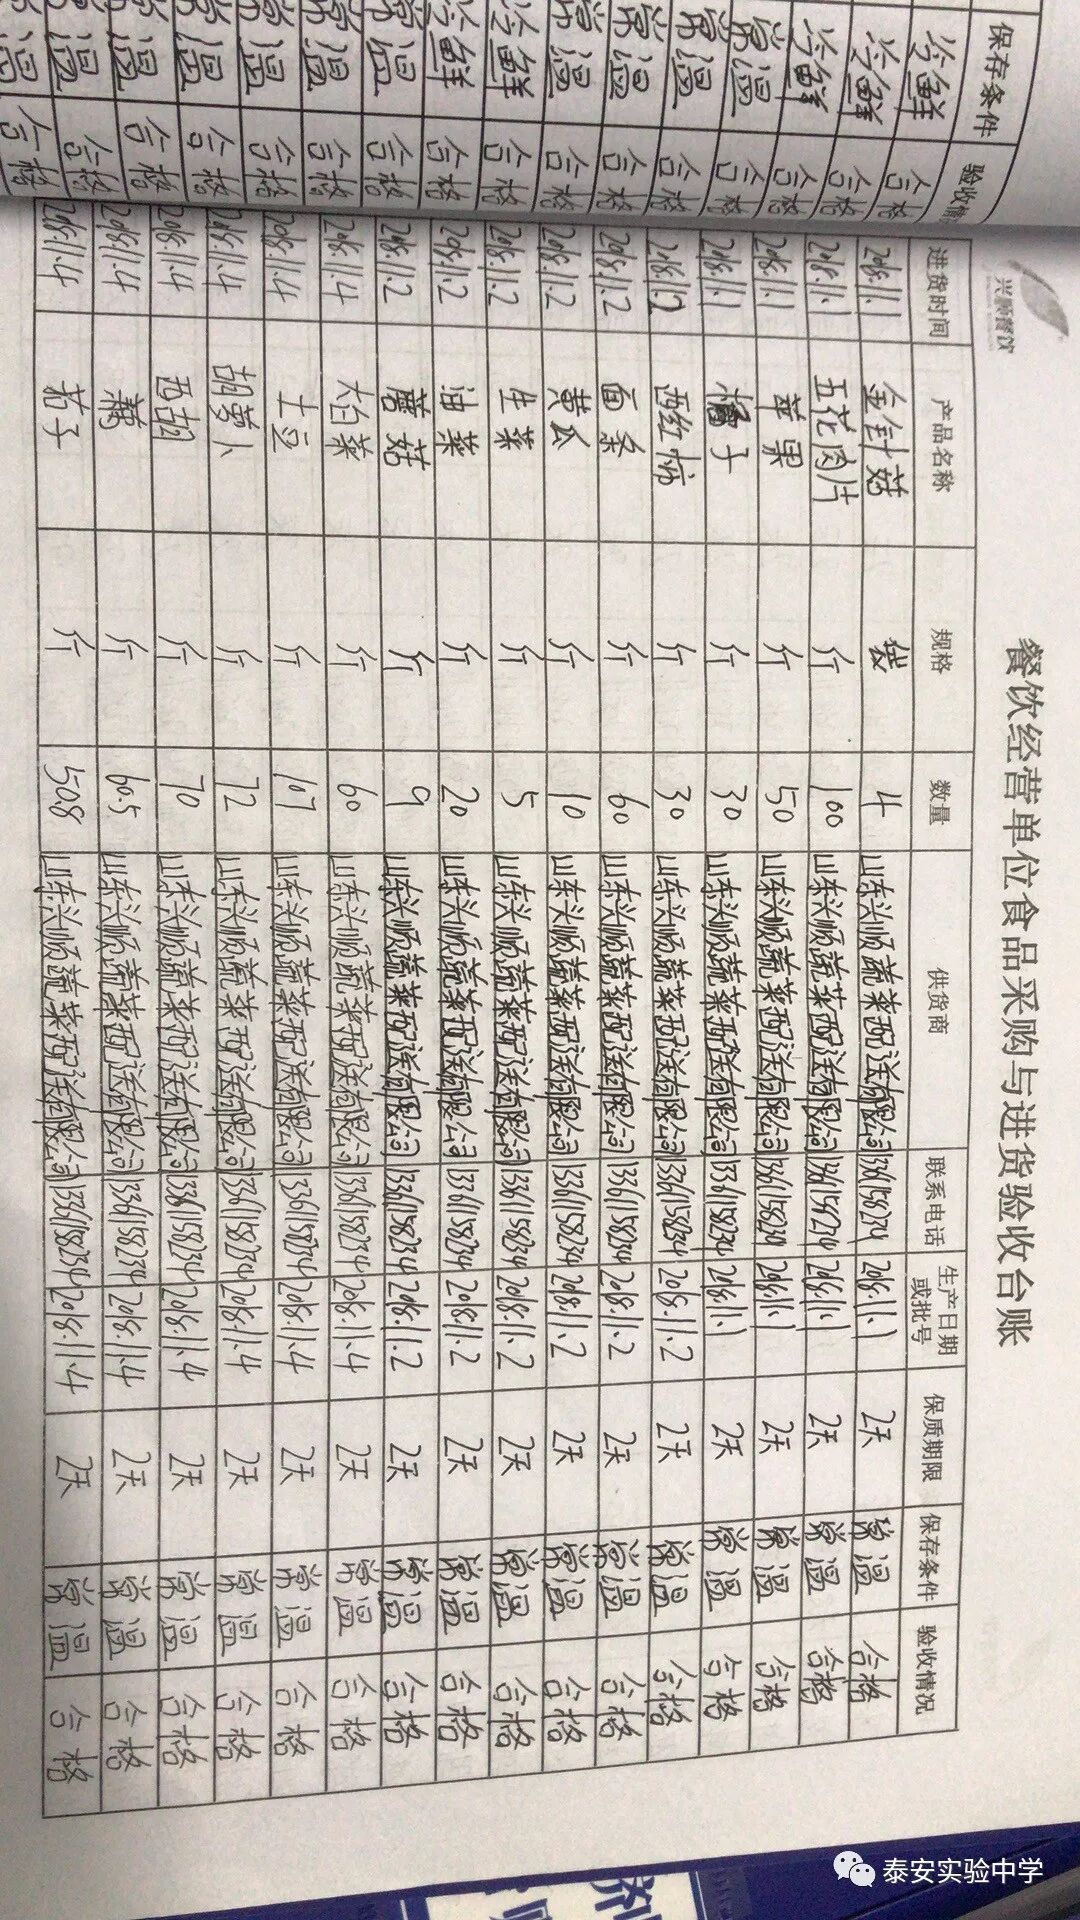 兴顺餐饮
餐饮经营单位食品采购与进货验收台账
进货时间 产品名称 规格 数量 供货商 联系电话 生产日期或批号 保质期限 保存条件 验收情况
2018.11.1 金针菇 袋 4 山东兴顺蔬菜配送有限公司 13361158234 2018.11.1 2天 常温 合格
2018.11.1 五花肉片 斤 100 山东兴顺蔬菜配送有限公司 13361158234 2018.11.1 2天 常温 合格
2018.11.1 苹果 斤 50 山东兴顺蔬菜配送有限公司 13361158234 2018.11.1 2天 常温 合格
2018.11.1 橘子 斤 30 山东兴顺蔬菜配送有限公司 13361158234 2018.11.1 2天 常温 合格
2018.11.2 西红柿 斤 30 山东兴顺蔬菜配送有限公司 13361158234 2018.11.2 2天 常温 合格
2018.11.2 面条 斤 60 山东兴顺蔬菜配送有限公司 13361158234 2018.11.2 2天 常温 合格
2018.11.2 黄瓜 斤 10 山东兴顺蔬菜配送有限公司 13361158234 2018.11.2 2天 常温 合格
2018.11.2 生菜 斤 5 山东兴顺蔬菜配送有限公司 13361158234 2018.11.2 2天 常温 合格
2018.11.2 油菜 斤 20 山东兴顺蔬菜配送有限公司 13361158234 2018.11.2 2天 常温 合格
2018.11.2 蘑菇 斤 9 山东兴顺蔬菜配送有限公司 13361158234 2018.11.2 2天 常温 合格
2018.11.4 大白菜 斤 60 山东兴顺蔬菜配送有限公司 13361158234 2018.11.4 2天 常温 合格
2018.11.4 土豆 斤 107 山东兴顺蔬菜配送有限公司 13361158234 2018.11.4 2天 常温 合格
2018.11.4 胡萝卜 斤 72 山东兴顺蔬菜配送有限公司 13361158234 2018.11.4 2天 常温 合格
2018.11.4 西胡 斤 70 山东兴顺蔬菜配送有限公司 13361158234 2018.11.4 2天 常温 合格
2018.11.4 斤 60.5 山东兴顺蔬菜配送有限公司 13361158234 2018.11.4 2天 常温 合格
2018.11.4 茄子 斤 508 山东兴顺蔬菜配送有限公司 13361158234 2018.11.4 2天 常温 合格
保存条件 验收情
冷鲜 合格
冷鲜 合格
冷鲜 合格
常温 合格
常温 合格
常温 合格
常温 合格
冷鲜 合格
冷鲜 合格
常温 合格
常温 合格
常温 合格
常温 合格
常温 合格
常温 合格
常温 合格
泰安实验中学